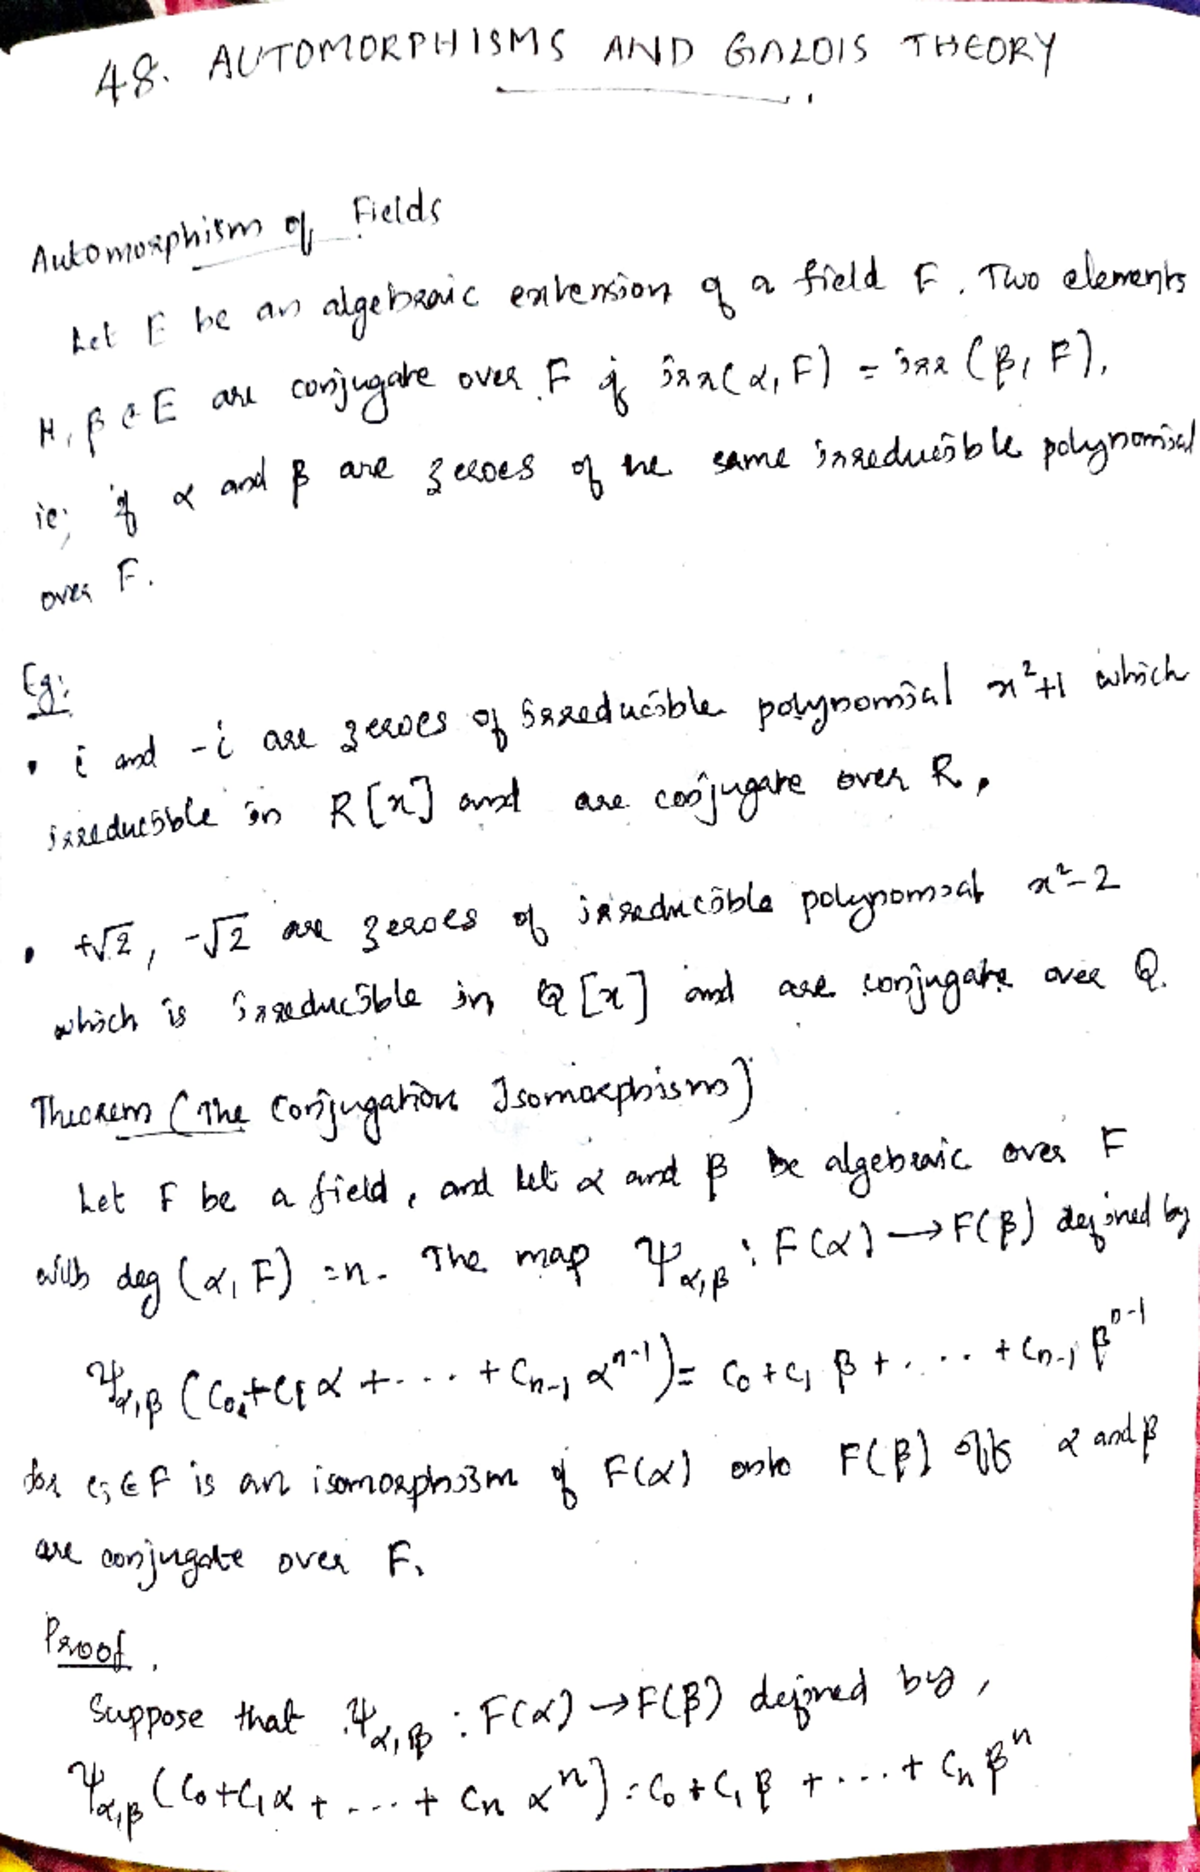 48. AUTOMORPHISMS AND GALOIS THEORY
Automorphism of Fields
Let E be an algebraic extension of a field F. Two elements
α, β ∈ E are conjugate over F if irr(α, F) = irr (β, F).
ie; if α and β are zeroes of the same irreducible polynomial
over F.
Eg:
• i and -i are zeroes of irreducible polynomial x²+1 which
irreducible in R[x] and are conjugate over R.
• +√2, -√2 are zeroes of irreducible polynomial x²-2
which is irreducible in Q[x] and are conjugate over Q.
Theorem (The Conjugation Isomorphism)
Let F be a field, and let α and β be algebraic over F
with deg (α, F) = n. The map Ψα,β : F(α) → F(β) defined by
Ψα,β (C₀+C₁α + . . . + Cn-1 αⁿ⁻¹) = C₀ + C₁ β + . . . . + Cn-1 βⁿ⁻¹
for ci ∈ F is an isomorphism of F(α) onto F(β) iff α and β
are conjugate over F.
Proof.
Suppose that Ψα,β : F(α) → F(β) defined by,
Ψα,β (C₀+C₁α + . . . + Cn αⁿ) = C₀ + C₁ β + . . . + Cn βⁿ